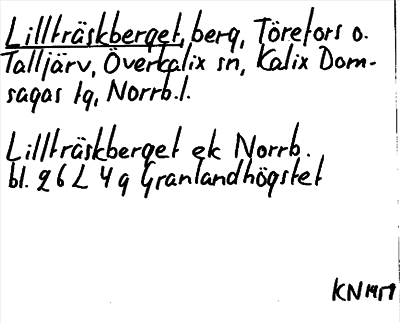 Lillträskberget, berg, Törefors o.
Talljärv, Överkalix sn, Kalix Dom-
sagas tg, Norrb.l.
Lillträskberget ek Norrb.
bl. 26 L 4 g Granlandhögstet
KN 1959